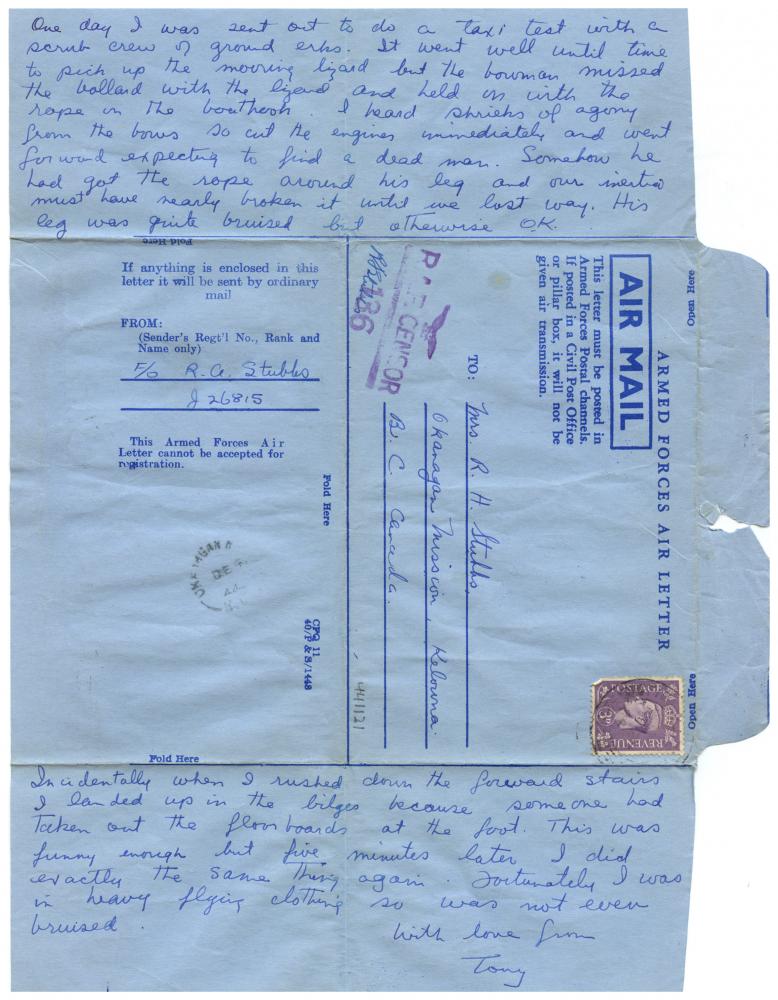 One day I was sent out to do a taxi test with a
scrub crew of ground erks. It went well until time
to pick up the mooring lizard but the bowman missed
the bollard with the lizard and held on with the
rope on the boathook. I heard shrieks of agony
from the bows so cut the engines immediately and went
forward expecting to find a dead man. Somehow he
had got the rope around his leg and our inertia
must have nearly broken it until we lost way. His
leg was quite bruised but otherwise OK.
Fold Here
If anything is enclosed in this
letter it will be sent by ordinary
mail
FROM:
(Sender's Regt'l No., Rank and
Name only)
F/O R. A. Stubbs
J 26815
This Armed Forces Air
Letter cannot be accepted for
registration.
Fold Here
DE
44
CPQ 11
40/P & S/1448
ARMED FORCES AIR LETTER
AIR MAIL
This letter must be posted in
Armed Forces Postal channels.
If posted in a Civil Post Office
or pillar box, it will not be
given air transmission.
CENSOR
186
TO: Mrs R. H. Stubbs,
Okanagan Mission, Kelowna
B. C. Canada.
441121
Open Here
Open Here
POSTAGE
REVENUE
3D
Fold Here
Incidentally when I rushed down the forward stairs
I landed up in the bilges because someone had
taken out the floorboards at the foot. This was
funny enough but five minutes later I did
exactly the same thing again. Fortunately I was
in heavy flying clothing so was not even
bruised.
With love from
Tony